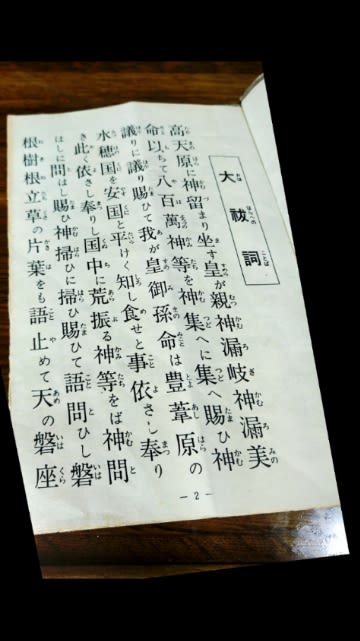 大祓詞
高天原に神留まり坐す皇が親神漏岐神漏美の
命以ちて八百萬神等を神集へに集へ賜ひ神
議りに議り賜ひて我が皇御孫命は豊葦原の
水穂国を安国と平けく知し食せと事依さし奉り
き此く依さし奉りし国中に荒振る神等をば神問
はしに問はし賜ひ神掃ひに掃ひ賜ひて語問ひし磐
根樹根立草の片葉をも語止めて天の磐座
- 2 -